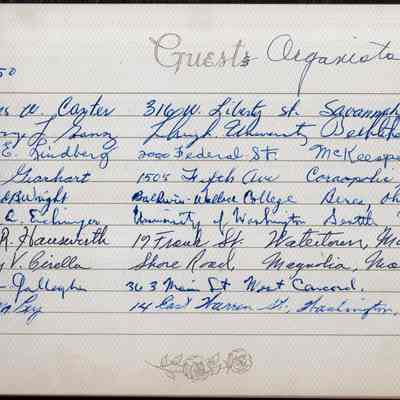 Guests Organists
50
W. Carter 316 W. Liberty St. Savannah
Lehigh University Bethlehe
E. Lindberg 2000 Federal St. McKeespo
Gearhart 1505 Fifth Ave Coraopolis
Wright Baldwin-Wallace College Berea, Oh
University of Washington Seattle
R. Hauswirth 19 Frank St. Watertown, Ma
V. Cirella Shore Road, Magnolia, Ma
Gallagher 363 Main St West Concord.
14 East Warren St., Washington,